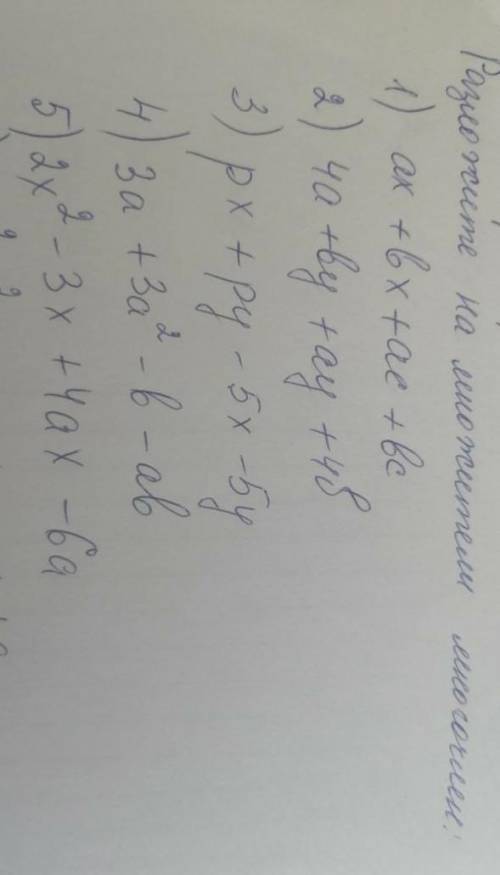 Разложите на множители многочлен:
1) ax + bx + ac + bc
2) 4a + by + ay + 4b
3) px + py - 5x - 5y
4) 3a + 3a² - b - ab
5) 2x² - 3x + 4ax - 6a